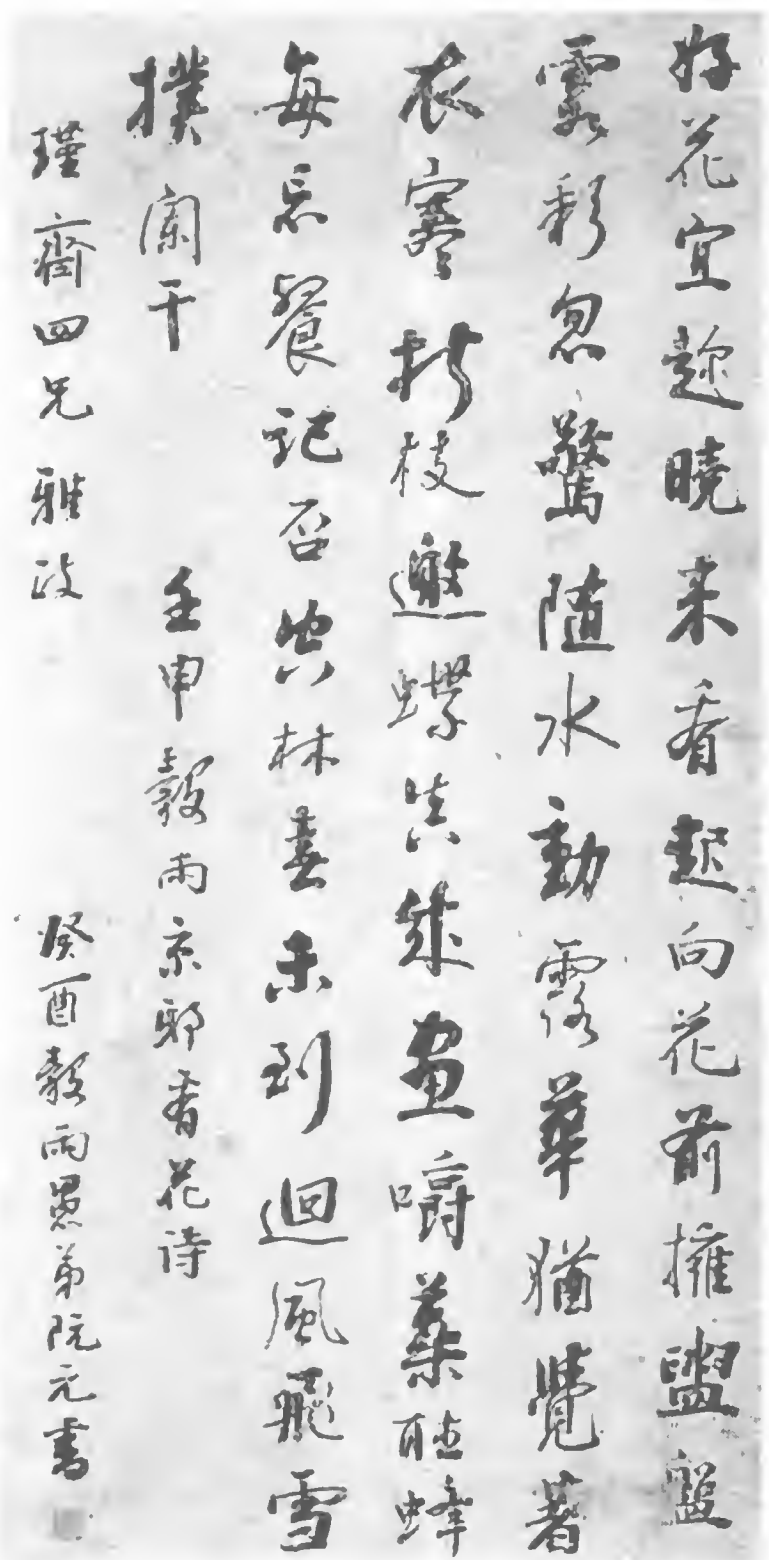 好花宜趂曉来看起向花前擁盥盤
霞彩忽驚隨水動露華猶覺著
衣寒折枝邀蝶真成畫嚼蘂聽蜂
每忘餐記否林春未到迴風飛雪
撲闌干 壬申穀雨京邸看花詩
瑾齋四兄雅政 癸酉穀雨愚弟阮元書